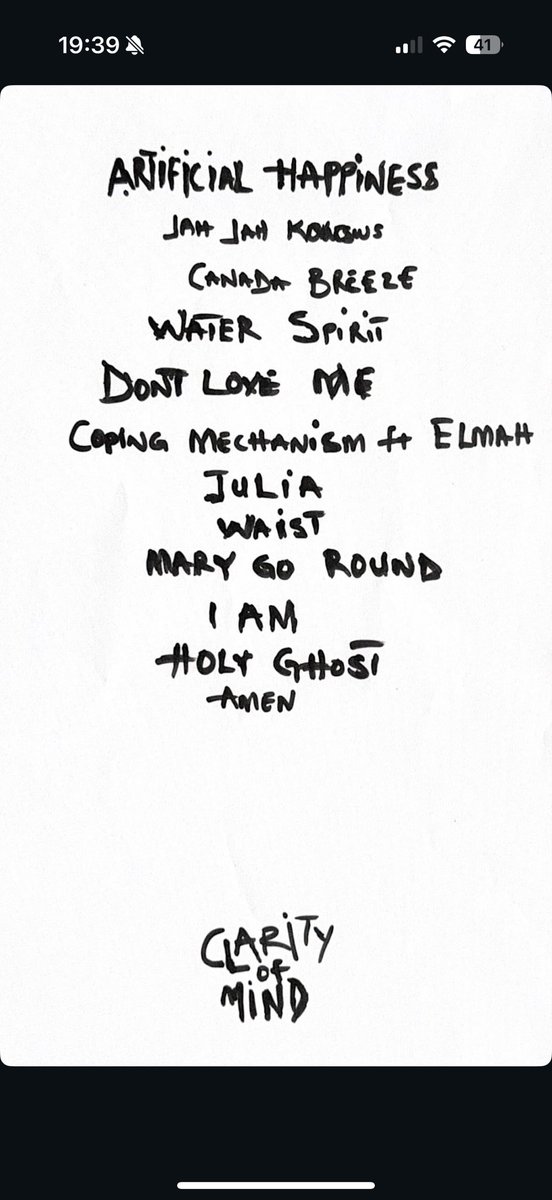 19:39
41
ARTIFICIAL HAPPINESS
JAH JAH KNOWS
CANADA BREEZE
WATER SPIRIT
DONT LOVE ME
COPING MECHANISM ft ELMAH
JULIA
WAIST
MARY GO ROUND
I AM
HOLY GHOST
AMEN
CLARITY
OF
MIND